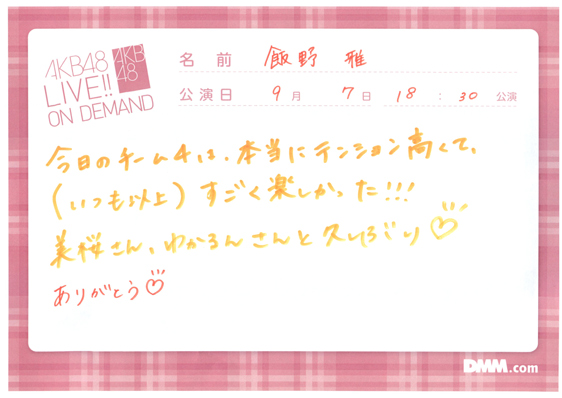 AKB48
LIVE!!
ON DEMAND
AKB
48
名前 飯野 雅
公演日 9月 7日 18:30公演
今日のチーム4は、本当にテンション高くて、
(いつも以上)すごく楽しかった!!!
美桜さん、わかるんさんと久しぶり♡
ありがとう♡
DMM.com